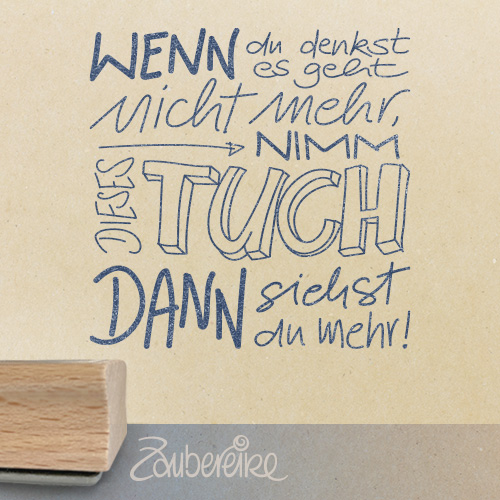 WENN du denkst
es geht
nicht mehr,
NIMM
DIESES
TUCH
DANN siehst
du mehr!
Zaubereike